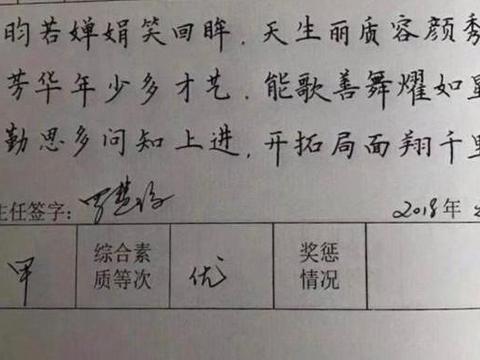 昀若婵娟笑回眸，天生丽质容颜秀
芳华年少多才艺，能歌善舞耀如星
勤思多问知上进，开拓局面翔千里
主任签字：
2018年
甲 综合素质等次 优 奖惩情况